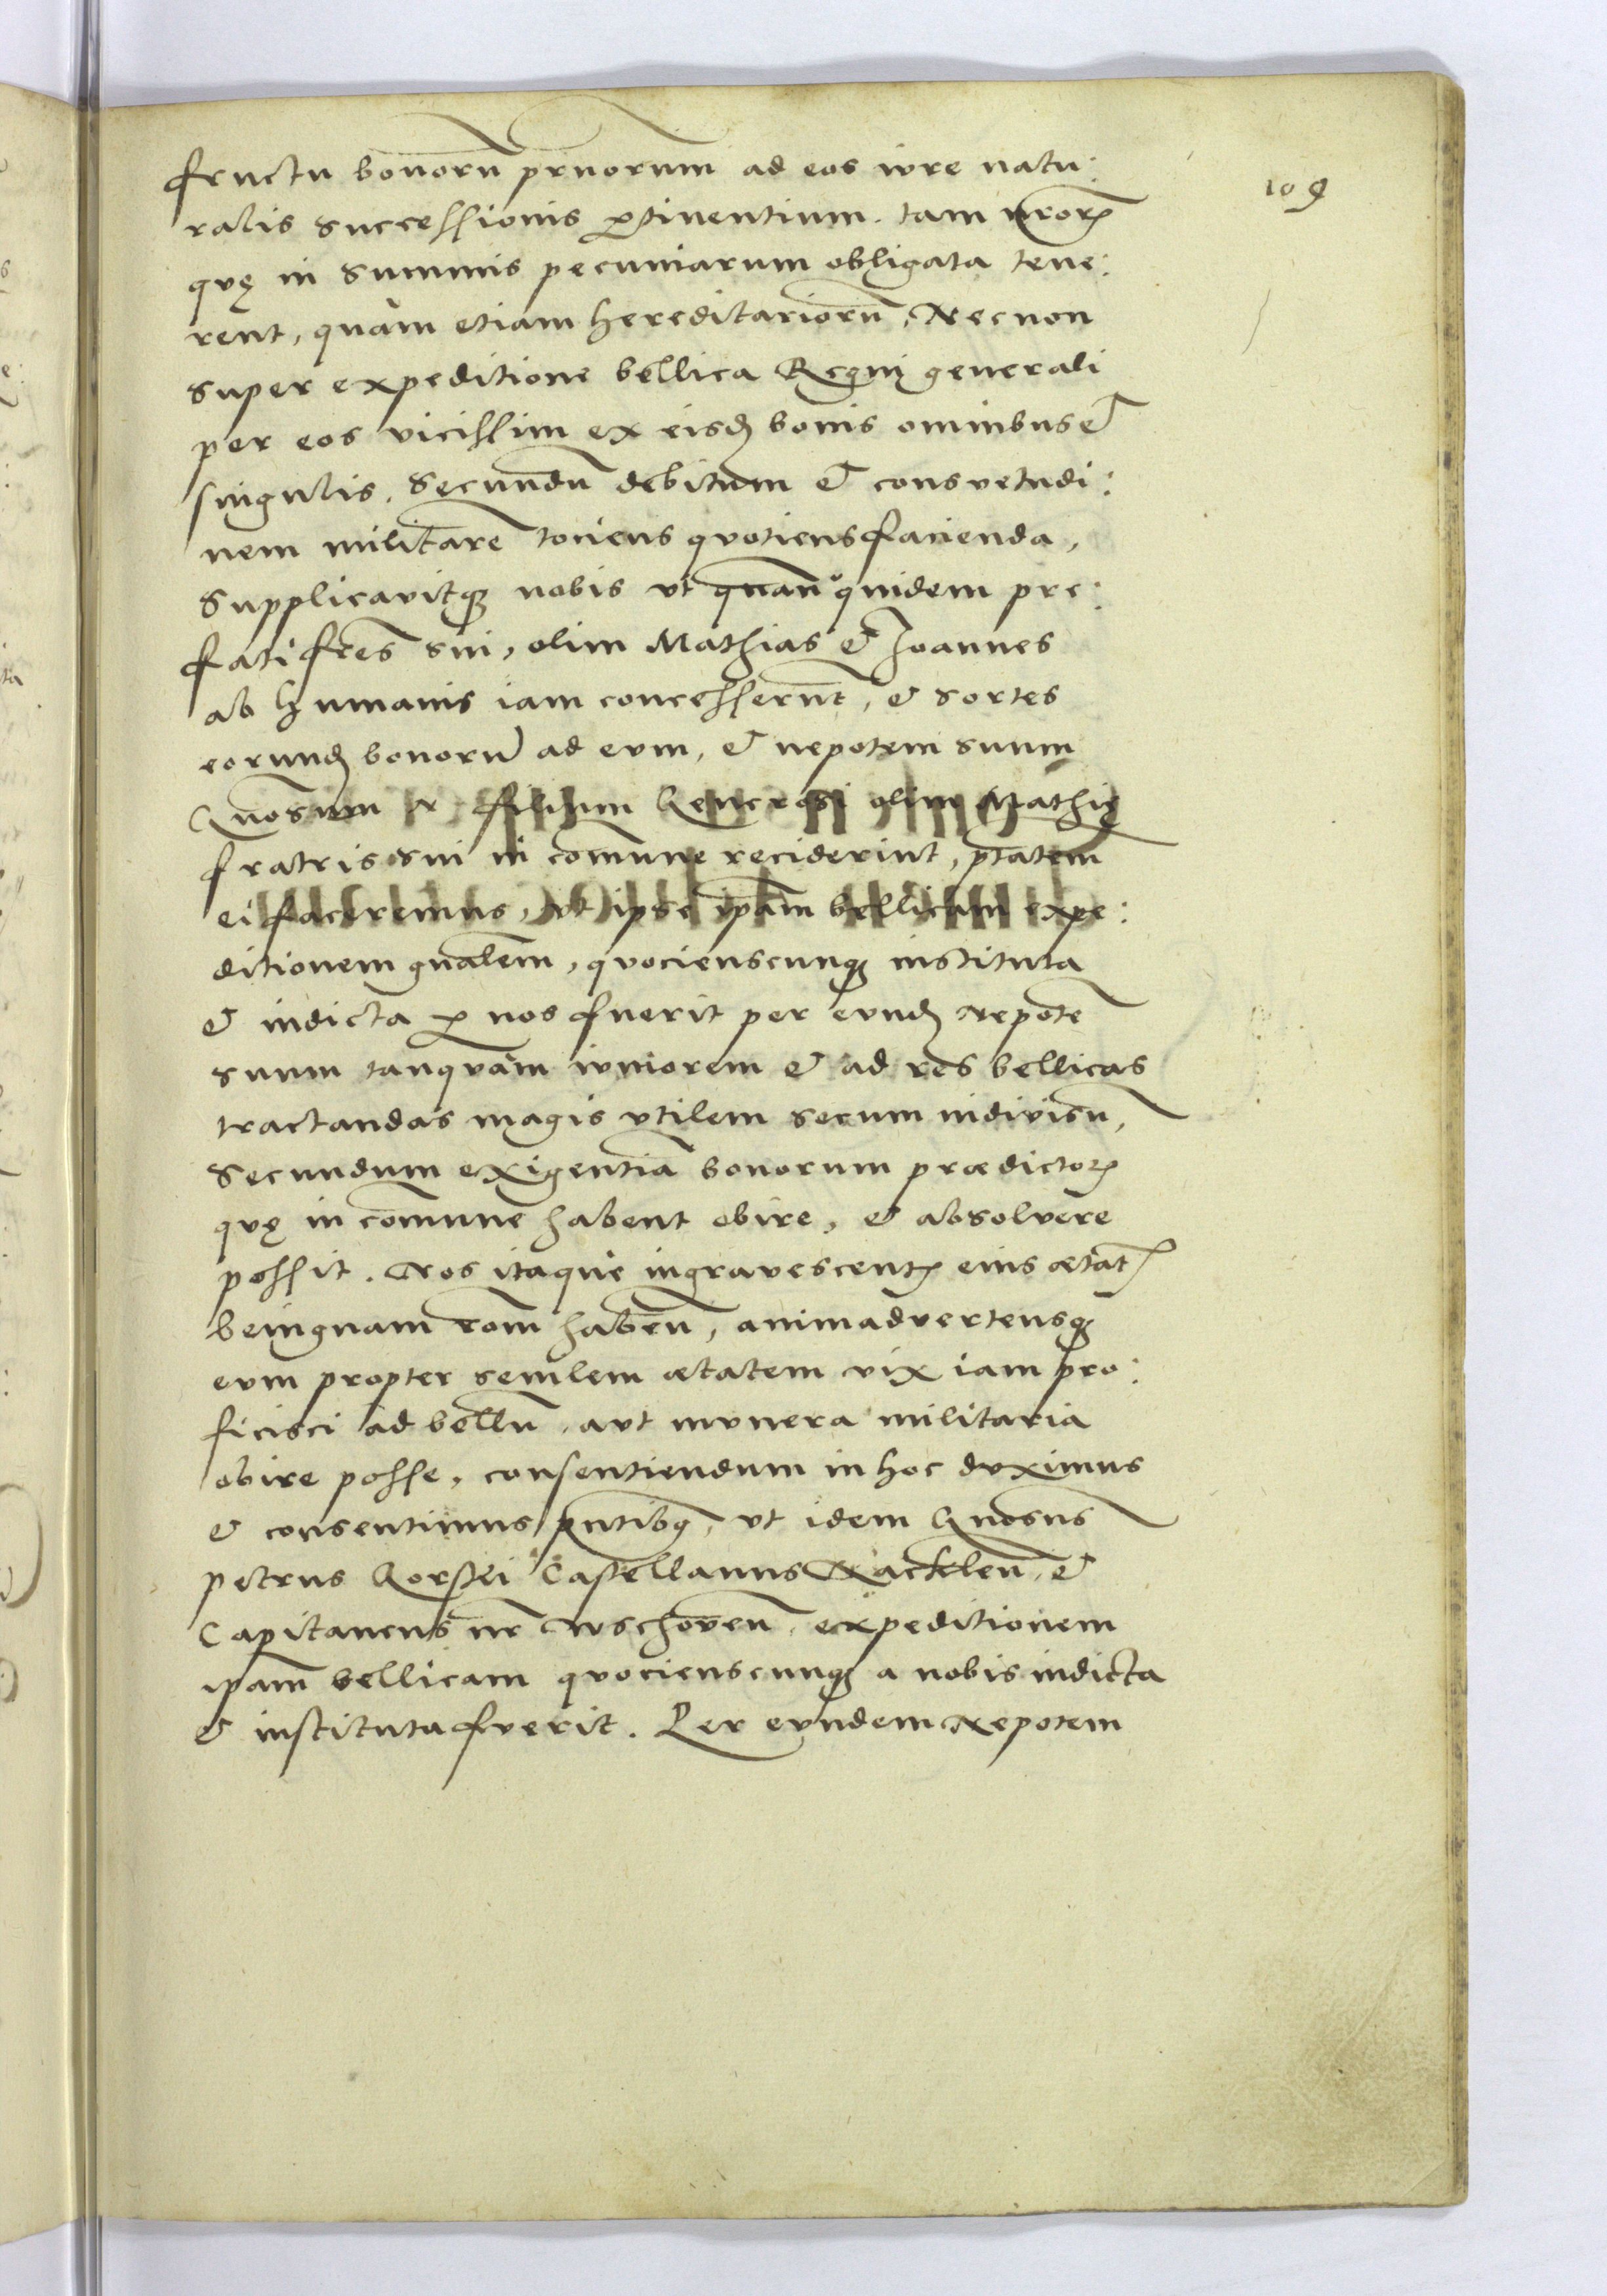 fructu bonorũ prnorum ad eos iure natu:
109
ralis successionis ꝑtinentium. tam nrorꝝ
quę in summis pecuniarum obligata tene:
rent, quàm etiam hereditariorũ, Necnon
super expeditione bellica Regni generali
per eos vicissim ex eisdꝫ bonis omnibus et
singulis, secundũ debitum et consvetudi:
nem militarẽ tociens quotiens facienda,
Supplicavitqꝫ nobis vt quidem pre:
fati fr̃es sui, olim Mathias et Joannes
ab humanis iam concesserũt, et sortes
eorundꝫ bonorũ ad eum, et nepotem suum
Gnosum N. filium Generosi olim Mathię
fratris sui in com̃une reciderint, p̃tatem
ei faceremus, vt ipse ip̃am bellicam expe:
ditionem gnãlem, quocienscunqꝫ instituta
et indicta ꝑ nos fuerit per eundꝫ Nepotẽ
suum tanquàm iuniorem et ad res bellicas
tractandas magis vtilem secum indivisũ,
Secundum exigentiã bonorum prædictorꝝ
quę in com̃une habent obire, et absolvere
possit. Nos itaque ingravescentꝭ eius ætatꝭ
benignam rõm habeñ, animadvertensqꝫ
eum propter senilem ætatem vix iam pro:
ficisci ad bellũ, aut munera militaria
obire posse, consentiendum in hoc duximus
et consentimus pñtibꝫ, vt idem Gnosus
petrus Gorski Castellanus Nacklen̄, et
Capitaneus nr̃ Wschoven̄, expeditionem
ip̃am bellicam quocienscunqꝫ a nobis indicta
et instituta fuerit. Per eundem Nepotem